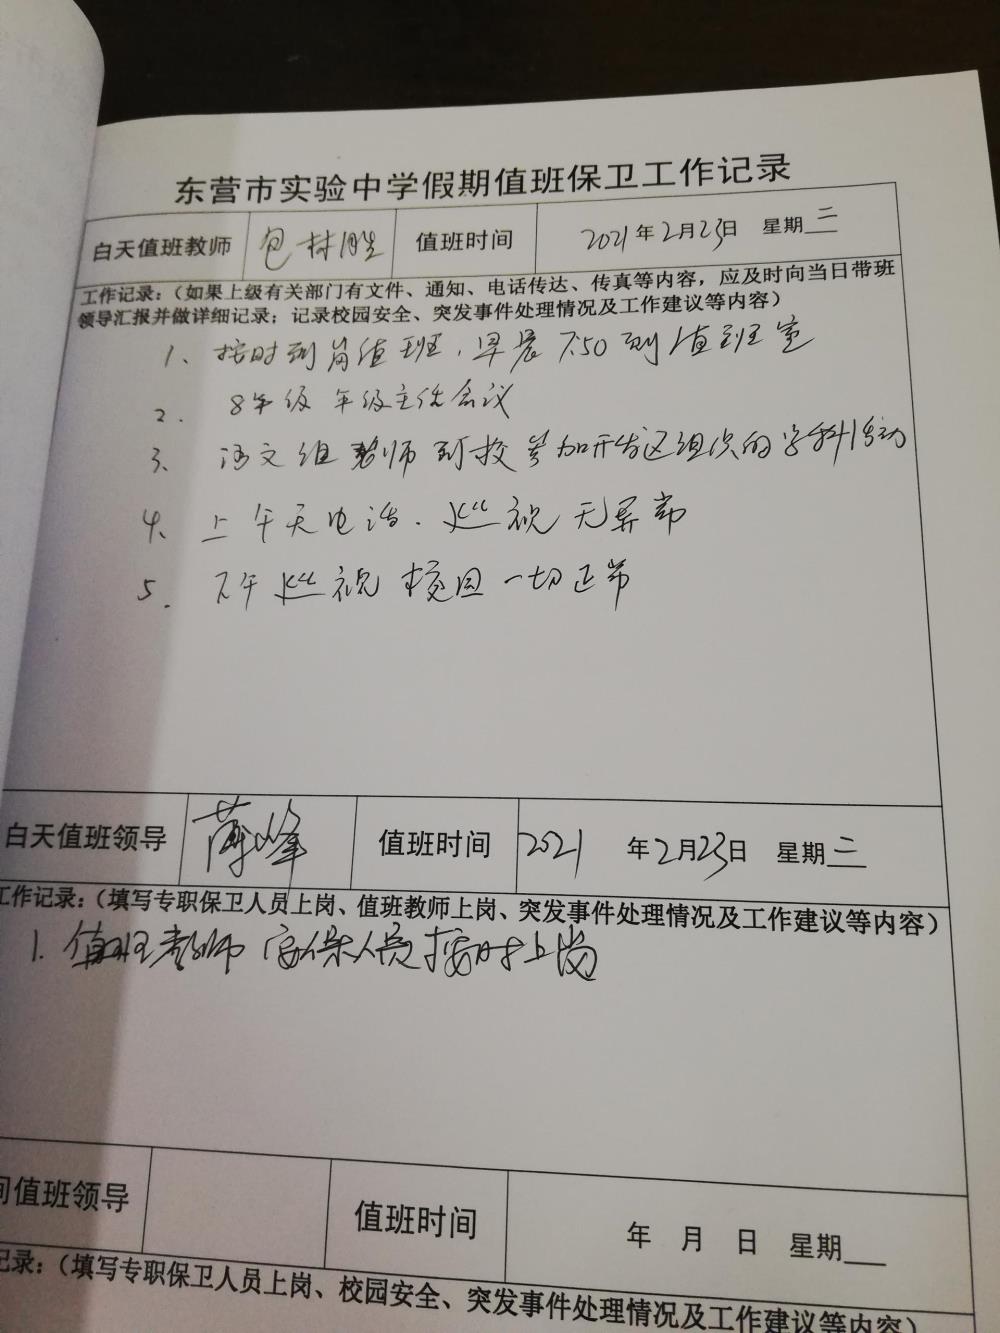 东营市实验中学假期值班保卫工作记录
白天值班教师 包林胜 值班时间 2021年2月23日 星期二
工作记录：（如果上级有关部门有文件、通知、电话传达、传真等内容，应及时向当日带班
领导汇报并做详细记录；记录校园安全、突发事件处理情况及工作建议等内容）
1、按时到岗值班，早晨7:50到值班室
2. 8年级年级主任会议
3、语文组老师到校参加开发区组织的学科活动
4、上午无电话．巡视无异常
5. 下午巡视校园一切正常
白天值班领导 薄峰 值班时间 2021年2月23日 星期二
工作记录：（填写专职保卫人员上岗、值班教师上岗、突发事件处理情况及工作建议等内容）
1. 值班老师 安保人员按时上岗
间值班领导 值班时间 年 月 日 星期
记录：（填写专职保卫人员上岗、校园安全、突发事件处理情况及工作建议等内容）